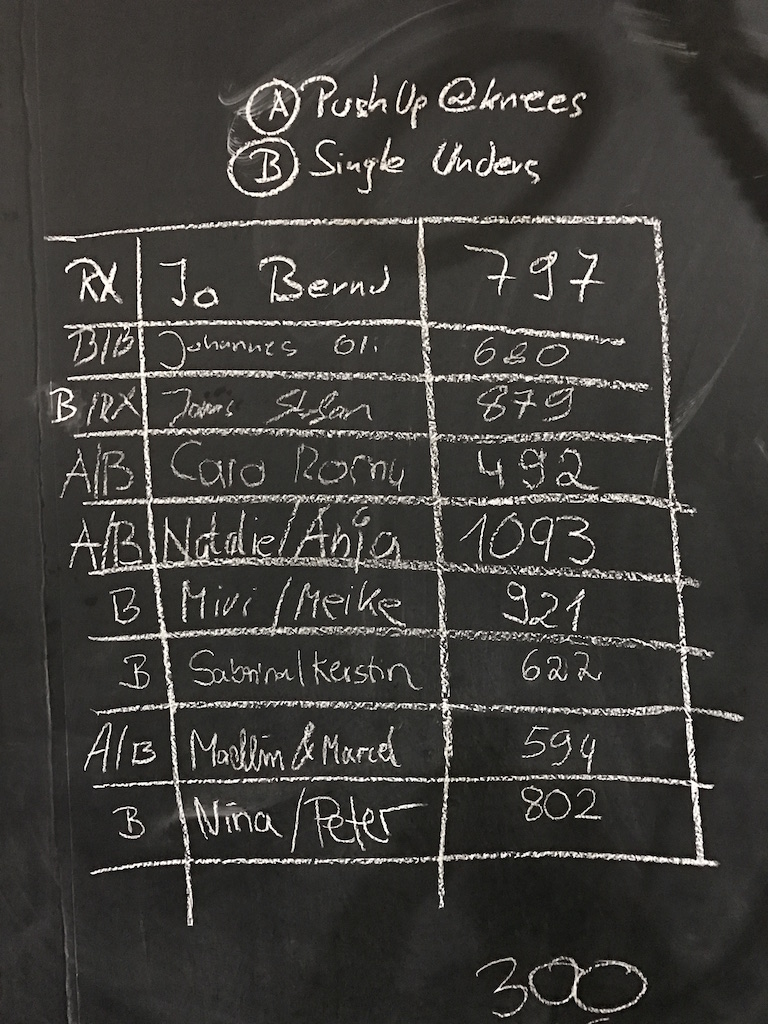 A Push Up @knees
B Single Unders
RX Jo Bernd 797
B/B Johannes Oli 680
B/RX Stefan 879
A/B Caro Romy 492
A/B Natalie/Anja 1093
B Mivi/Meike 921
B Sabrina/Kerstin 622
A/B & Marcel 594
B Nina/Peter 802
300